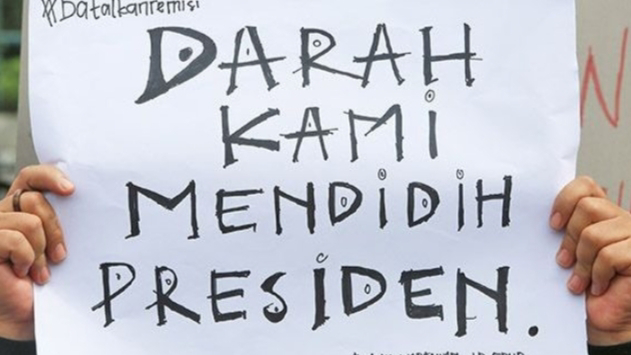 #BatalkanRemisi
DARAH
KAMI
MENDIDIH
PRESIDEN.